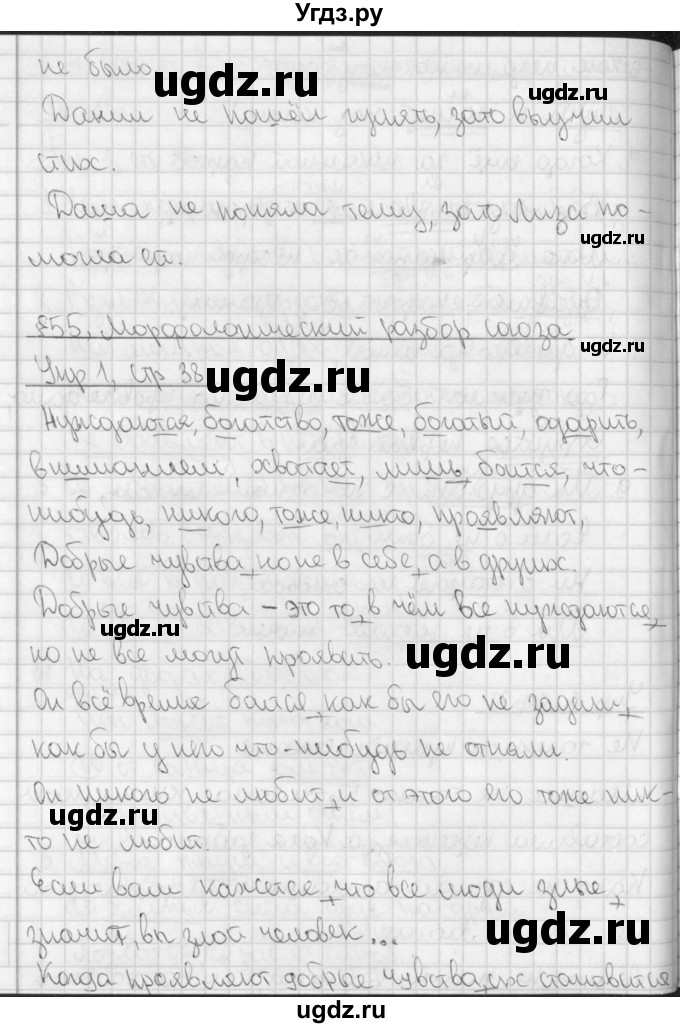 Угдз.ру
не было
ugdz.ru
Данил не пошёл гулять, зато выучил
ugdz.ru
стих.
Даша не поняла тему, зато Лиза по-
ugdz.ru
могла ей.
§55. Морфологический разбор союза.
ugdz.ru
Упр 1, стр 38
ugdz.ru
Нуждаются, богатство, тоже, богатый, одарить,
вниманием, хватает, лишь, боится, что-
нибудь, никого, тоже, никто, проявляют,
ugdz.ru
Добрые чувства, но не в себе, а в других.
Добрые чувства – это то, в чём все нуждаются,
ugdz.ru
но не все могут проявить.
ugdz.ru
Он всё время боится, как бы его не задели,
как бы у него что-нибудь не отняли.
Он никого не любит, и от этого его тоже ник-
ugdz.ru
то не любит.
Если вам кажется, что все люди злые,
значит, вы злой человек...
ugdz.ru
Когда проявляют добрые чувства, их становится
ugdz.ru